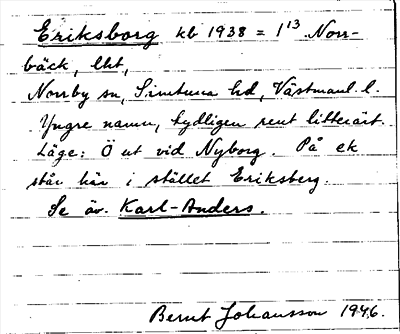 Eriksborg kb 1938 = 1¹³ Norr-
bäck, lht,
Norrby sn, Simtuna hd, Västmanl. l.
Yngre namn, tydligen rent litterärt.
Läge: Ö ut vid Nyborg. På ek
står här i stället Eriksberg.
Se äv. Karl-Anders.
Bernt Johansson 1946.